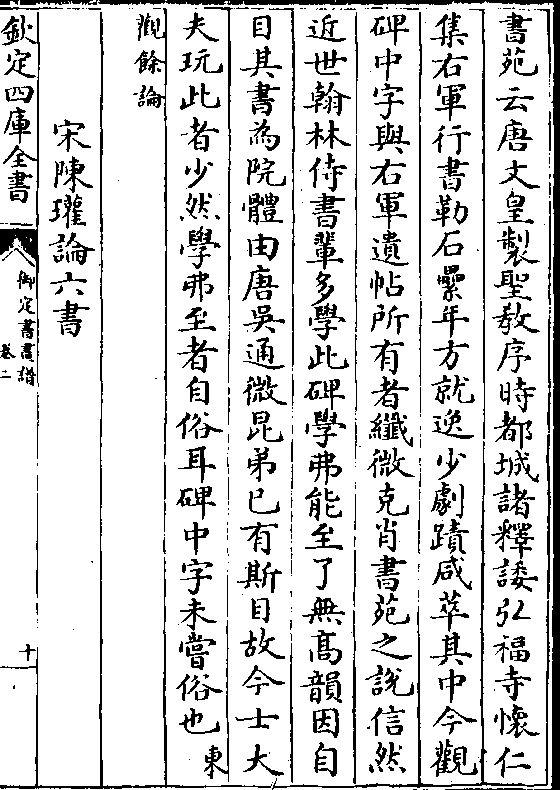 書苑云唐文皇製聖教序時都城諸釋諉弘福寺懷仁
集右軍行書勒石纍年方就逸少劇蹟咸萃其中今觀
碑中字與右軍遺帖所有者纖微克肖書苑之說信然
近世翰林侍書輩多學此碑學弗能至了無高韻因自
目其書為院體由唐吳通微昆弟已有斯目故今士大
夫玩此者少然學弗至者自俗耳碑中字未嘗俗也東
觀餘論
宋陳瓘論六書
欽定四庫全書
御定書畫譜
卷二
十